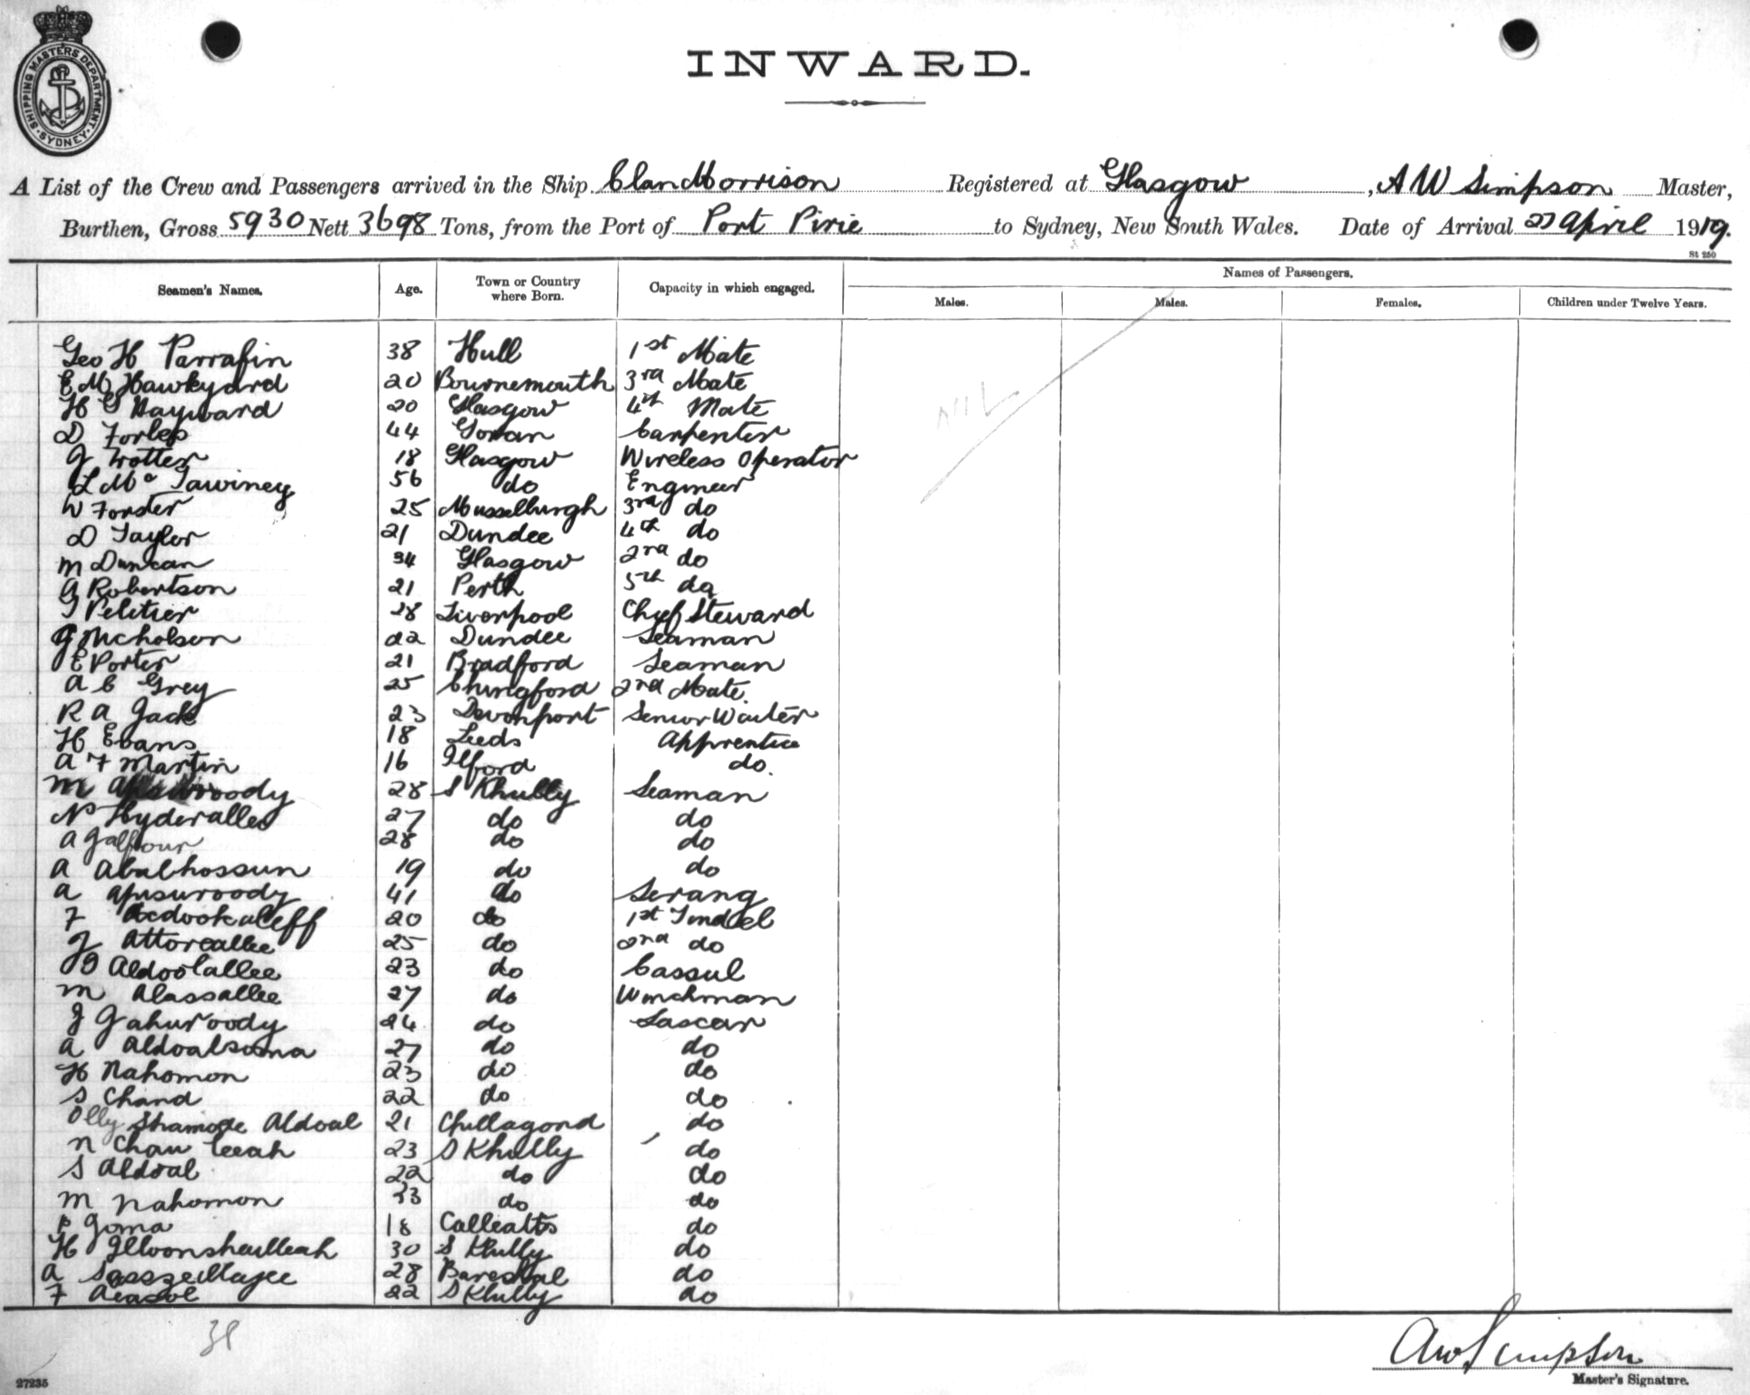 SHIPPING MASTERS DEPARTMENT · SYDNEY ·
INWARD.
A List of the Crew and Passengers arrived in the Ship Clan Morrison Registered at Glasgow, A W Simpson Master,
Burthen, Gross 5930 Nett 3698 Tons, from the Port of Port Pirie to Sydney, New South Wales. Date of Arrival 27 April 1919.
St 250
Seamen's Names. Age. Town or Country where Born. Capacity in which engaged. Names of Passengers.
Males. Males. Females. Children under Twelve Years.
Geo H Parrafin 38 Hull 1st Mate
E M Hawkyard 20 Bournemouth 3rd Mate
H G Hayward 20 Glasgow 4th Mate
D Forles 44 Govan Carpenter
J Trotter 18 Glasgow Wireless Operator
L Mc Tawiney 56 do Engineer
W Forster 25 Musselburgh 3rd do
D Taylor 21 Dundee 4th do
M Duncan 34 Glasgow 2nd do
A Robertson 21 Perth 5th do
T Peletier 28 Liverpool Chief Steward
J Nicholson 22 Dundee Seaman
J E Porter 21 Bradford Seaman
A C Grey 25 Chingford 2nd Mate
R A Jack 23 Devonport Senior Waiter
H Evans 18 Leeds Apprentice
A F Martin 16 Ilford do.
M 28 S Khully Seaman
N Hyderallee 27 do do
A Jalfour 28 do do
A Abalhossun 19 do do
A Apusuroody 41 do Serang
F 20 do 1st Tindel
J Attoreallee 25 do 2nd do
I Aldoolallee 23 do Cassul
M Alassallee 27 do Winchman
J Jahuroody 24 do Lascar
A Aldoalsoma 27 do do
H Nahomon 23 do do
S Chand 22 do do
Olly Shamode Aldoal 21 Chillagond do
N Chan Ceeah 23 S Khully do
S Aldoal 22 do do
M Nahomon 33 do do
P Goma 18 Calleatts do
H 30 S Khully do
A 28 do
F 22 S Khully do
NIL
38
A W Simpson
Master's Signature.
27235